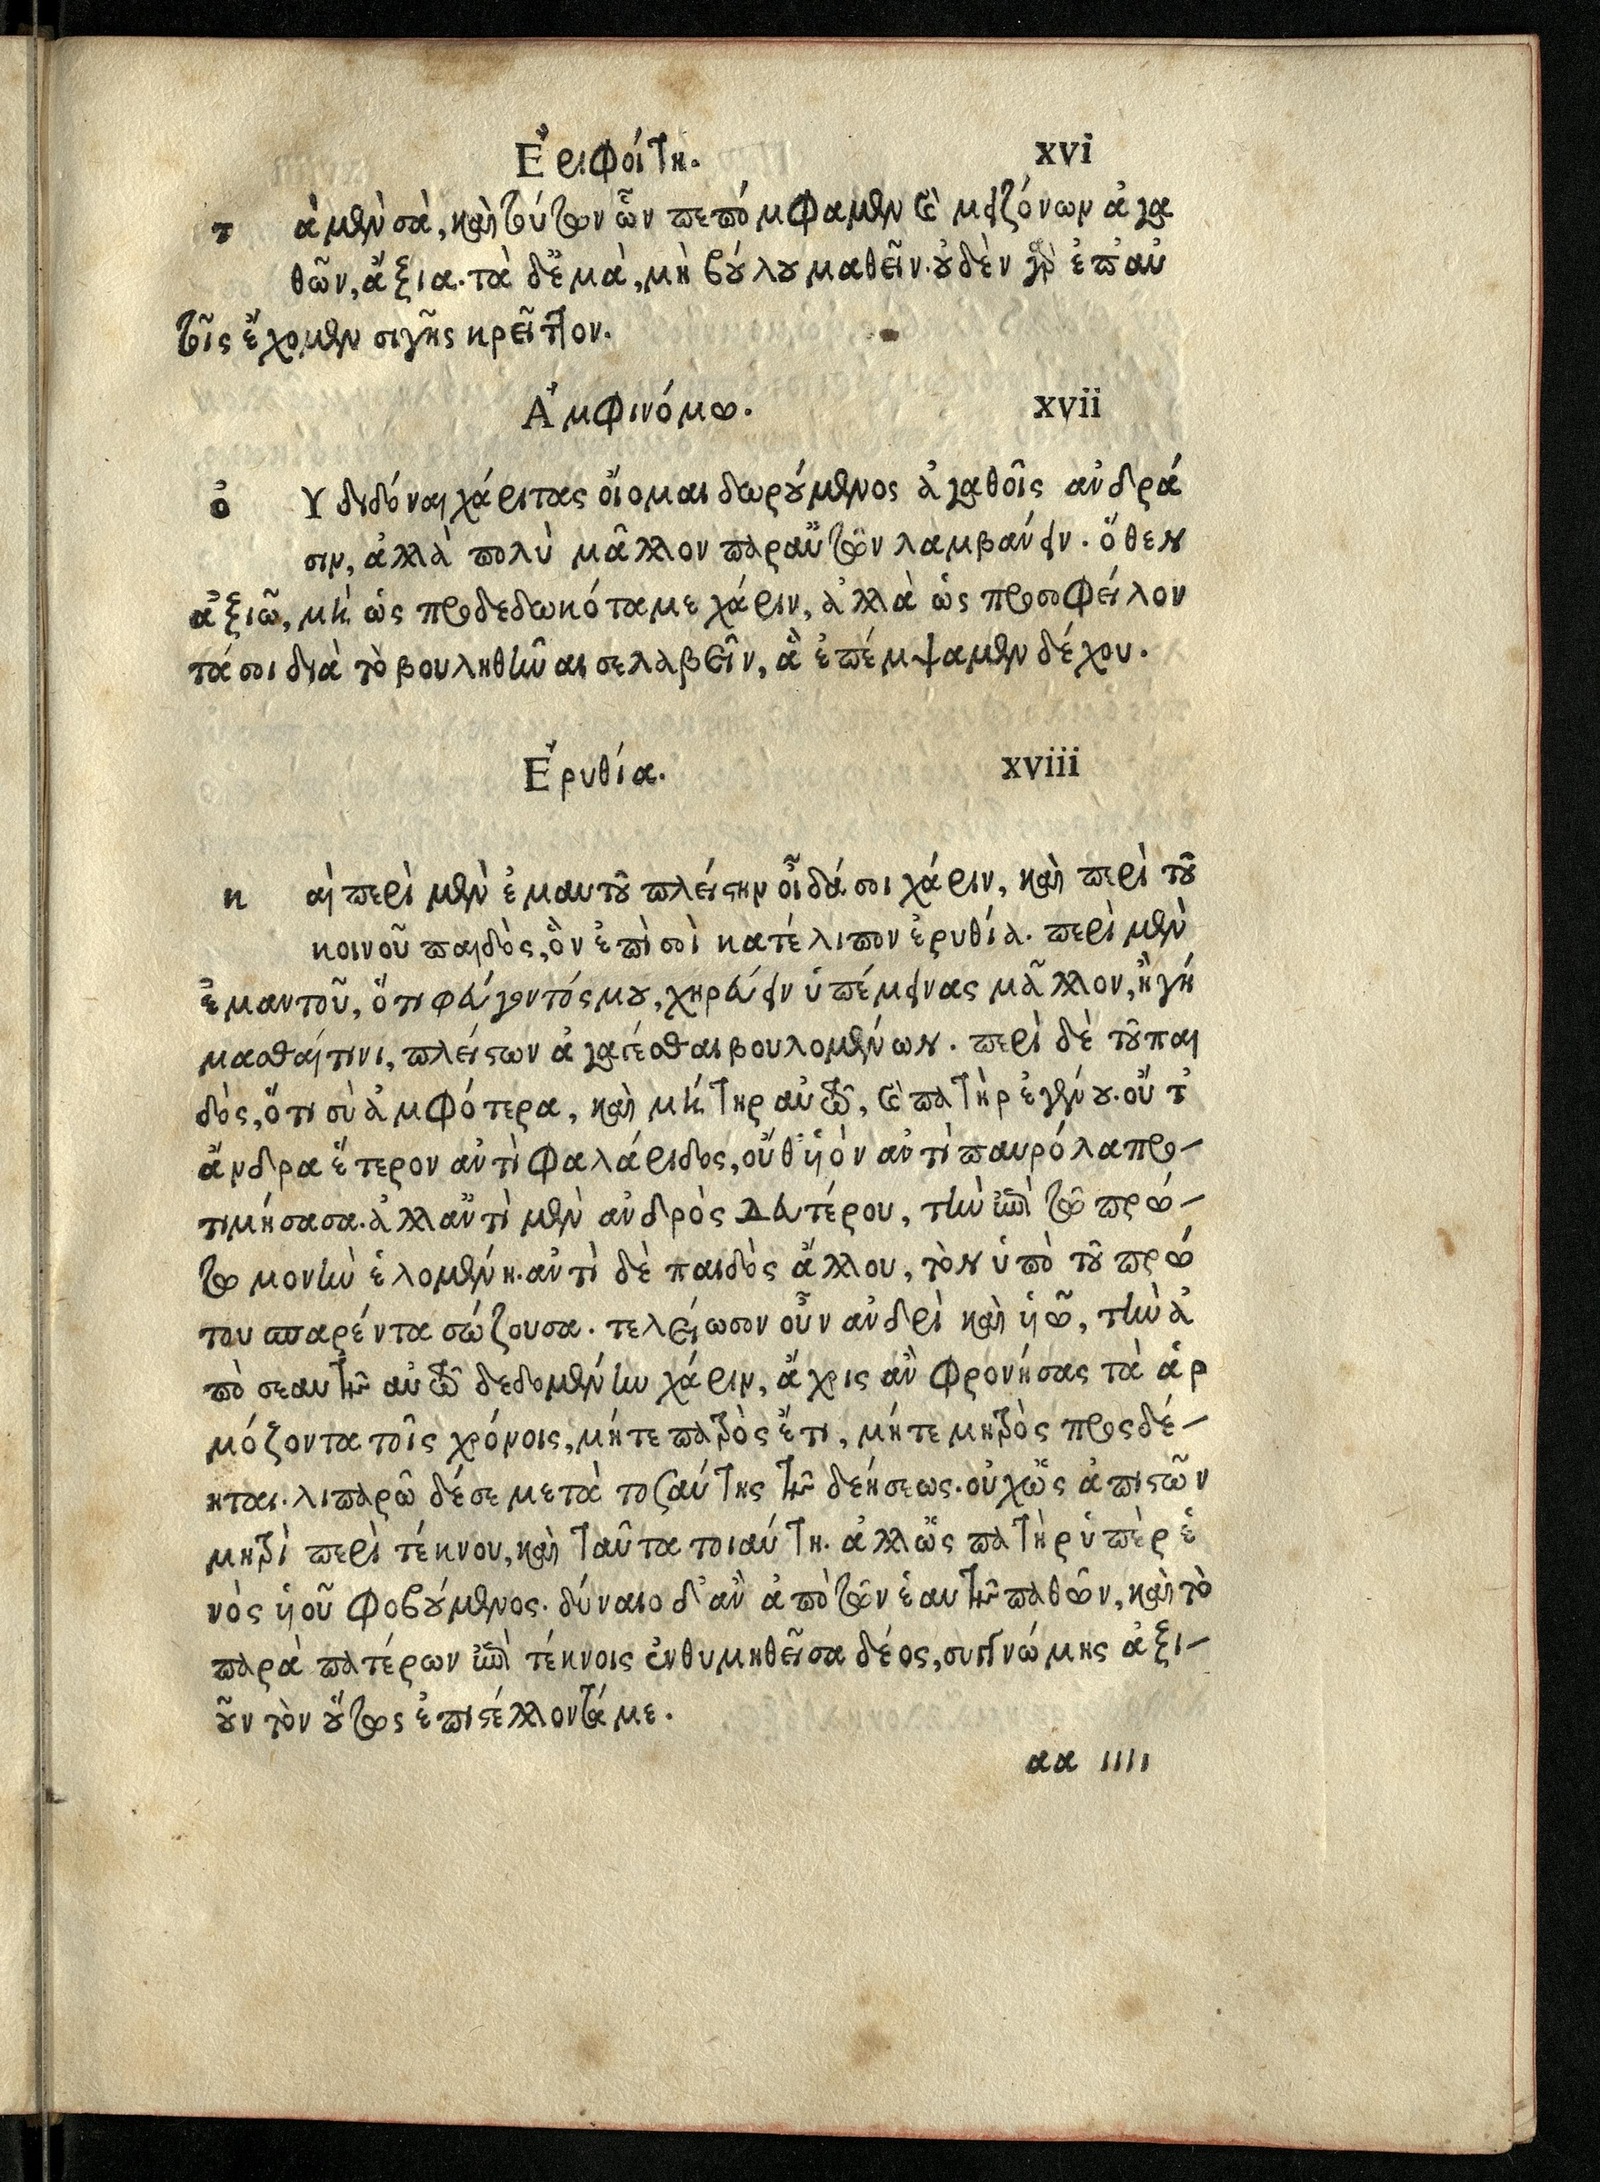 Ἐριφοίτῃ. xvi
τ ὰ μὲν σὰ, καὶ τούτων ὧν πεπόμφαμεν καὶ μειζόνων ἀγα
θῶν, ἄξια. τὰ δἐμὰ, μὴ βούλου μαθεῖν. οὐδὲν γὰρ ἐπ' αὐ
τοῖς ἔχομεν σιγῆς κρεῖττον.
Ἀμφινόμῳ. xvii
ὀ Υ διδόναι χάριτας οἴομαι δωρούμενος ἀγαθοῖς ἀνδρά
σιν, ἀλλὰ πολὺ μᾶλλον παραὐτῶν λαμβάνειν. ὅθεν
ἀξιῶ, μὴ ὡς προδεδωκότα με χάριν, ἀλλὰ ὡς προσοφείλον
τά σοι διὰ τὸ βουληθῆναι σε λαβεῖν, ἃ ἐπέμψαμεν δέχου.
Ἐρυθίᾳ. xviii
κ αὶ περὶ μὲν ἐμαυτοῦ πλείστην οἶδά σοι χάριν, καὶ περὶ τοῦ
κοινοῦ παιδὸς, ὃν ἐπὶ σοὶ κατέλιπον ἐρυθία. περὶ μὲν
ἐμαυτοῦ, ὅτι φεύγοντός μου, χηρεύειν ὑπέμεινας μᾶλλον, ἢ γή
μασθαί τινι, πλείστων ἀγαγέσθαι βουλομένων. περὶ δὲ τοῦ παι
δὸς, ὅτι σὺ ἀμφότερα, καὶ μήτηρ αὐτῷ, καὶ πατὴρ ἐγένου. οὔτ'
ἄνδρα ἕτερον ἀντὶ φαλάριδος, οὔθ' ὑὸν ἀντὶ παυρόλα προ-
τιμήσασα. ἀλλἀντὶ μὲν ἀνδρὸς δευτέρου, τὴν ἐπὶ τῷ πρώ-
τῳ μονὴν ἑλομένη. ἀντὶ δὲ παιδὸς ἄλλου, τὸν ὑπὸ τοῦ πρώ
του σπαρέντα σώζουσα. τελείωσον οὖν ἀνδρὶ καὶ ὑῷ, τὴν ἀ
πὸ σεαυτῆς αὐτῷ δεδομένην χάριν, ἄχρις ἂν φρονήσας τὰ ἁρ
μόζοντα τοῖς χρόνοις, μήτε πατρὸς ἔτι, μήτε μητρὸς προςδέ-
ηται. λιπαρῶ δέ σε μετὰ τοσαύτης τῆς δεήσεως. οὐχὡς ἀπιστῶν
μητρὶ περὶ τέκνου, καὶ ταῦτα τοιαύτῃ. ἀλλὡς πατὴρ ὑπὲρ ἑ
νὸς ὑοῦ φοβούμενος. δύναιο δ' ἂν ἀπὸ τῶν ἑαυτῆς παθῶν, καὶ τὸ
παρὰ πατέρων ἐπὶ τέκνοις ἐνθυμηθεῖσα δέος, συγγνώμης ἀξι-
οῦν τὸν οὕτως ἐπιστέλλοντά με.
αα ιιιι